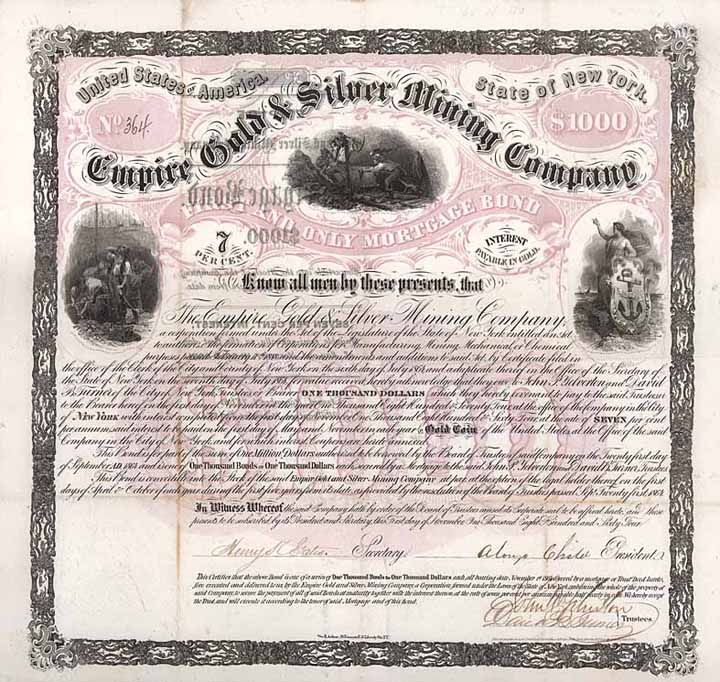 United States of America.
State of New York.
No. 364.
$1000
Empire Gold & Silver Mining Company
ONLY MORTGAGE BOND
7
PER CENT.
INTEREST
PAYABLE IN GOLD.
Know all men by these presents, that
The Empire Gold & Silver Mining Company,
a corporation formed under the Act of the Legislature of the State of New York entitled an act
to authorize the formation of Corporations for Manufacturing, Mining, Mechanical or Chemical
purposes and the amendments and additions to said Act, by Certificate filed in
the office of the Clerk of the City and County of New York on the sixth day of July 1864 and duplicate thereof in the Office of the Secretary of
the State of New York on the seventh day of July 1864, for value received hereby acknowledge that they owe to John P. Yelverton and David
B. Turner of the City of New York, Trustees or Bearer ONE THOUSAND DOLLARS which they hereby covenant to pay to the said Trustees or
to the Bearer hereof on the first day of November in the year One Thousand Eight Hundred & Seventy Four at the office of the Company in the City
of New York with interest from the first day of November One Thousand Eight Hundred & Sixty Four at the rate of SEVEN per cent
per annum, said interest to be paid on the first day of May and November in each year in Gold Coin of the United States, at the Office of the said
Company in the City of New York, and for which interest Coupons are hereto annexed.
This Bond is for part of the issue of One Million Dollars authorized to be borrowed by the Board of Trustees of said company on the Twenty first day
of September A.D. 1864 and is one of One Thousand Bonds of One Thousand Dollars each, secured by a Mortgage to the said John P. Yelverton and David B. Turner, Trustees.
This Bond is convertible into the Stock of the said Empire Gold and Silver Mining Company at par, at the option of the legal holder thereof on the first
days of April & October of each year during the first five years from its date as provided by the resolution of the Board of Trustees passed Sept. Twenty first 1864.
In Witness Whereof the said Company hath by order of the Board of Trustees caused its Corporate seal to be affixed hereto, and these
presents to be subscribed by its President and Secretary, this First day of November One Thousand Eight Hundred and Sixty Four.
Secretary
Alonzo Child President
This Certifies that the above Bond is one of a series of One Thousand Bonds for One Thousand Dollars each, all bearing date, November 1st 1864, secured by a mortgage or Trust Deed, hereto-
fore executed and delivered to us, by the Empire Gold and Silver Mining Company, a Corporation, formed under the Laws of the State of New York, conveying the whole of the property of
said Company, to secure the payment of all of said Bonds at maturity together with the interest thereon, at the rate of seven per cent per annum payable half yearly in gold. We hereby accept
the Trust, and will execute it according to the tenor of said Mortgage and of this Bond.
Trustees.